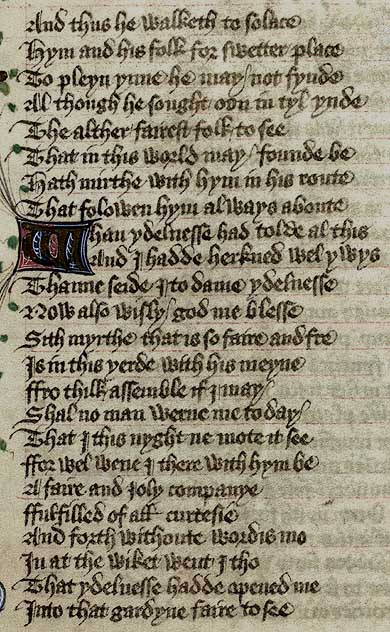 And thus he walketh to solace
Hym and his folk for swetter place
To pleyn ynne he may / not fynde
Al though he sought oon in tyl ynde
The alther fairest folk to see
That in this world may / founde be
Hath mirthe with hym in his route
That folowen hym always aboute
Whan ydelnesse had tolde al this
And I hadde herkned wel ywys
Thanne seide I to dame ydelnesse
Now also wisly / god me blesse
Sith myrthe that is so faire and fre
Is in this yerde with his meyne
ffro thilk assemble if I may /
Shal no man werne me to day /
That I this nyght ne mote it see
ffor wel wene I there with hym be
A faire and Ioly companye
ffulfilled of all curtesie
And forth withoute wordis mo
In at the wiket went I tho
That ydelnesse hadde opened me
Into that gardyne faire to see